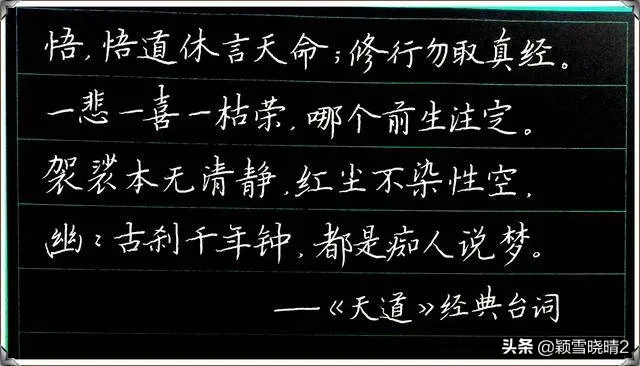 悟,悟道休言天命;修行勿取真经。
一悲一喜一枯荣,哪个前生注定。
袈裟本无清静,红尘不染性空,
幽幽古刹千年钟,都是痴人说梦。
——《天道》经典台词
头条@颖雪晓晴2